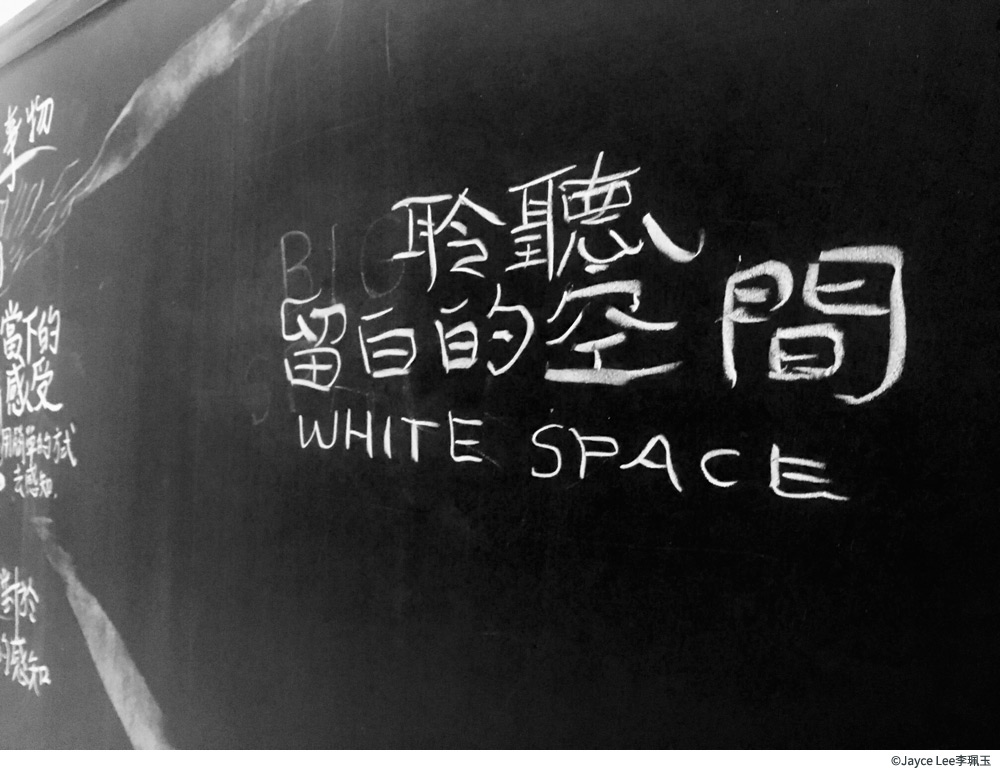 事物
當下的
感受
用簡單的方式
去感知.
對於
的感知
聆聽
留白的空間
WHITE SPACE
©Jayce Lee李珮玉